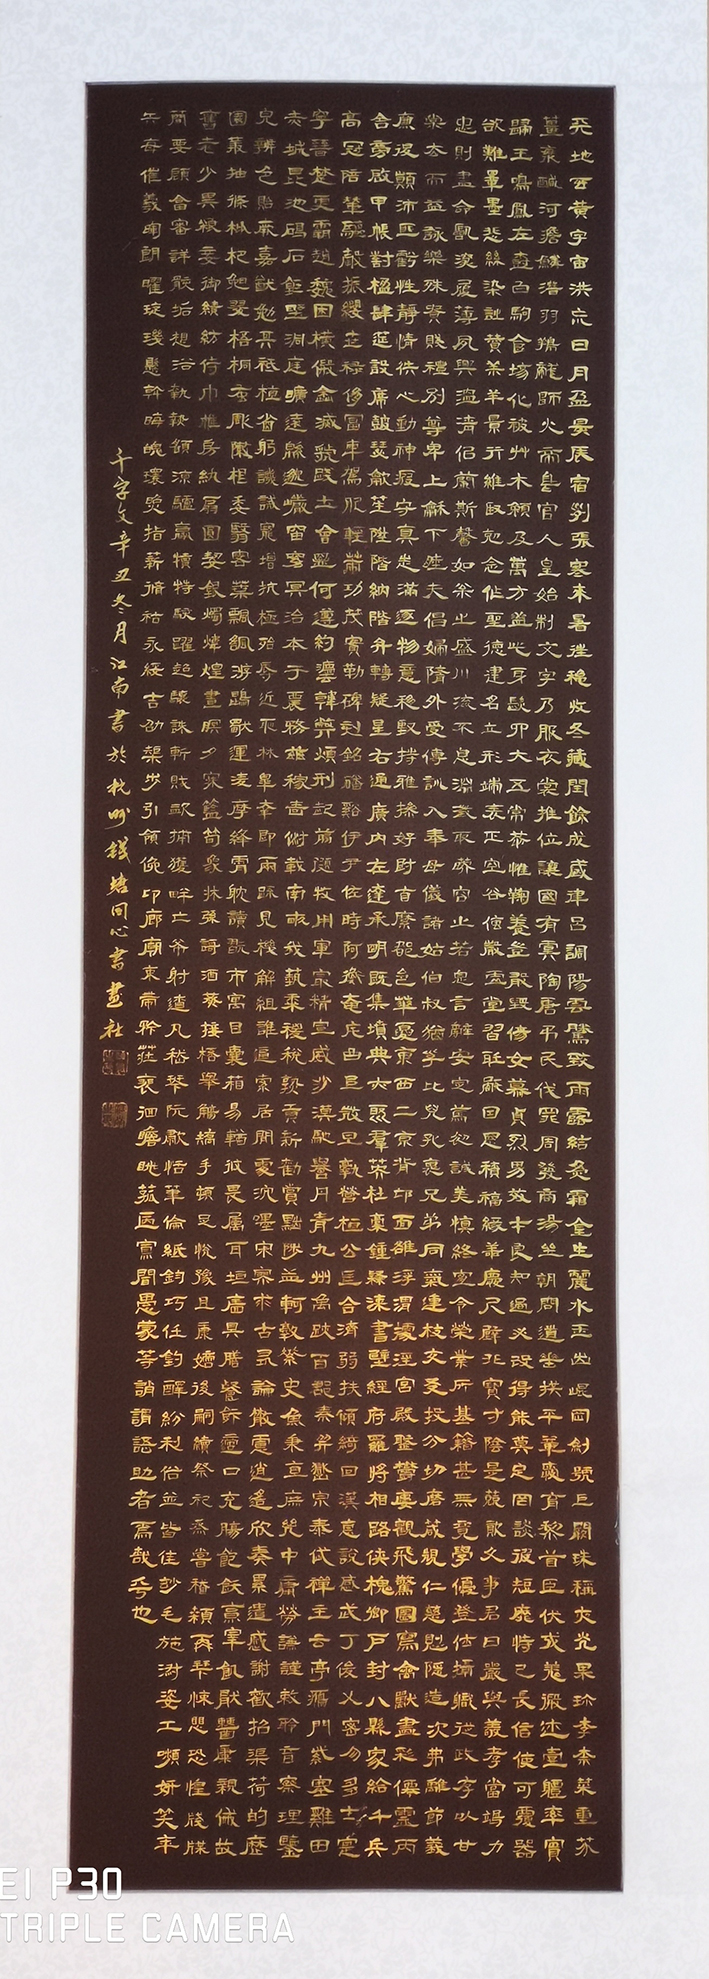 天地玄黃宇宙洪荒日月盈昃辰宿列張寒來暑往秋收冬藏閏餘成歲律呂調陽雲騰致雨露結為霜金生麗水玉出崐岡劍號巨闕珠稱夜光果珍李柰菜重芥
薑海鹹河澹鱗潛羽翔龍師火帝鳥官人皇始制文字乃服衣裳推位讓國有虞陶唐弔民伐罪周發商湯坐朝問道垂拱平章愛育黎首臣伏戎羌遐邇壹體率賓
歸王鳴鳳在樹白駒食場化被草木賴及萬方蓋此身髮四大五常恭惟鞠養豈敢毀傷女慕貞烈男效才良知過必改得能莫忘罔談彼短靡恃己長信使可覆器
欲難量墨悲絲染詩讚羔羊景行維賢克念作聖德建名立形端表正空谷傳聲虛堂習聽禍因惡積福緣善慶尺璧非寶寸陰是競資父事君曰嚴與敬孝當竭力
忠則盡命臨深履薄夙興溫凊似蘭斯馨如松之盛川流不息淵澄取映容止若思言辭安定篤初誠美慎終宜令榮業所基籍甚無竟學優登仕攝職從政存以甘
棠去而益詠樂殊貴賤禮別尊卑上龢下睦夫唱婦隨外受傅訓入奉母儀諸姑伯叔猶子比兒孔懷兄弟同氣連枝交友投分切磨箴規仁慈惻隱造次弗離節義
廉退顛沛匪虧性靜情逸心動神疲守真志滿逐物意移堅持雅操好爵自縻都邑華夏東西二京背邙面雒浮渭據涇宮殿盤鬱樓觀飛驚圖寫禽獸畫彩僊靈丙
舍旁啟甲帳對楹肆筵設席鼓瑟歙笙陞階納陛弁轉疑星右通廣內左達承明既集墳典亦聚羣英杜稾鍾隸漆書壁經府羅將相路俠槐卿戶封八縣家給千兵
高冠陪輦驅轂振纓世祿侈富車駕肥輕策功茂實勒碑刻銘磻谿伊尹佐時阿衡奄宅曲阜微旦孰營桓公匡合濟弱扶傾綺回漢惠說感武丁俊乂密勿多士寔
寧晉楚更霸趙魏困橫假途滅虢踐土會盟何遵約灋韓弊煩刑起翦頗牧用軍最精宣威沙漠馳譽丹青九州禹跡百郡秦并嶽宗泰岱禪主云亭雁門紫塞雞田
赤城昆池碣石鉅野洞庭曠遠緜邈巖岫窅冥治本于農務茲稼穡俶載南畝我藝黍稷稅孰貢新勸賞黜陟孟軻敦素史魚秉直庶幾中庸勞謙謹敕聆音察理鑒
皃辨色貽厥嘉猷勉其祗植省躬譏誡寵增抗極殆辱近恥林皋幸即兩疏見機解組誰逼索居閒處沈嘿寂寥求古尋論散慮逍遙欣奏累遣慼謝歡招渠荷的歷
園莽抽條枇杷晚翠梧桐蚤凋陳根委翳落葉飄颻游鵾獨運凌摩絳霄耽讀翫市寓目囊箱易輶攸畏屬耳垣牆具膳餐飯適口充腸飽飫烹宰飢厭糟糠親戚故
舊老少異糧妾御績紡侍巾帷房紈扇圓潔銀燭煒煌晝瞑夕寐籃筍象床弦歌酒讌接桮舉觴矯手頓足悅豫且康嫡後嗣續祭祀烝嘗稽顙再拜悚懼恐惶牋牒
簡要顧答審詳骸垢想浴執熱願涼驢騾犢特駭躍超驤誅斬賊盜捕獲畔亡布射遼丸嵇琴阮嘯恬筆倫紙鈞巧任釣釋紛利俗並皆佳妙毛施淑姿工嚬妍笑年
矢每催羲暉朗曜琁璣懸斡晦魄環照指薪脩祜永綏吉劭矩步引領俯仰廊廟束帶矜莊裴徊瞻眺孤陋寡聞愚蒙等誚謂語助者焉哉乎也
千字文辛丑冬月江南書於杭州錢塘同心書畫社
EI P30
TRIPLE CAMERA